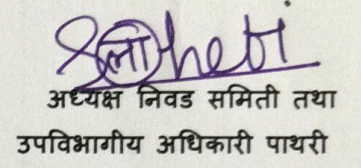 अध्यक्ष निवड समिती तथा
उपविभागीय अधिकारी पाथरी